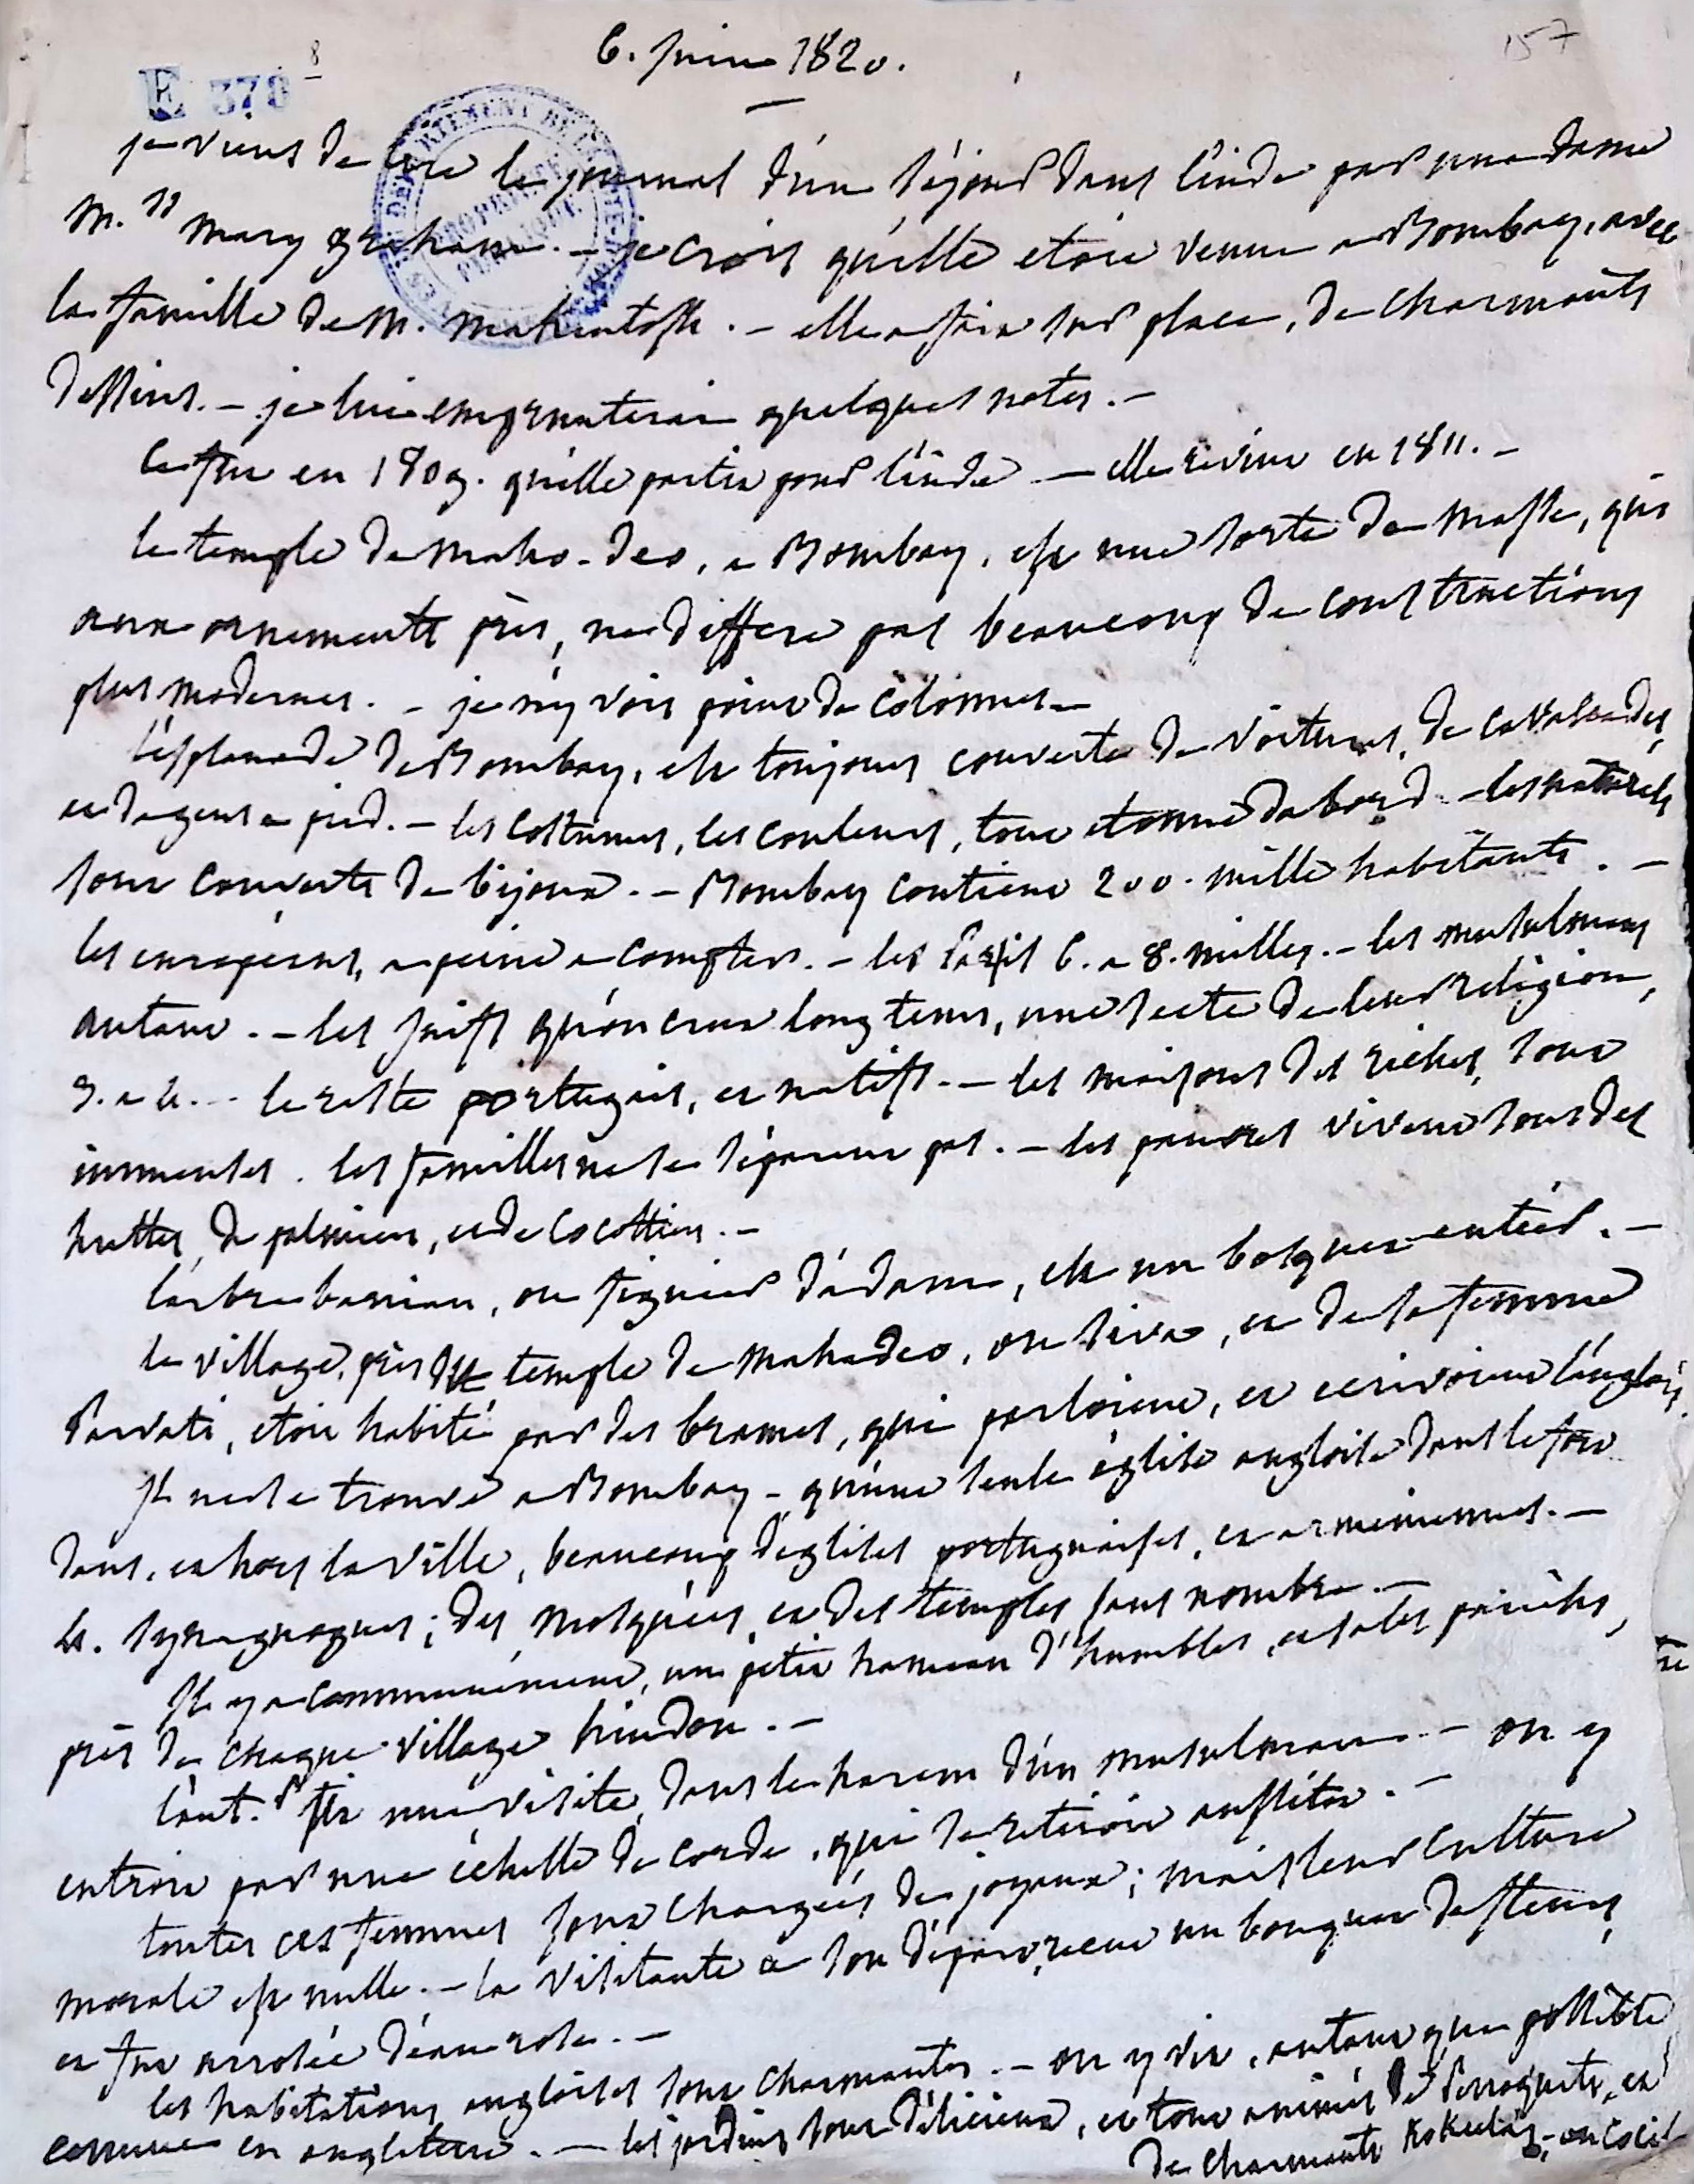 157
6. Juin 1820.
E 379 8
je viens de lire le journal d'un séjour dans l'inde par une dame
M.rs mary graham. - je crois qu'elle etoit venue a Bombay, avec
la famille de M. makintosh. - elle a fait sur place, de charmants
dessins. - je lui emprunterai quelques notes. -
Ce fut en 1809. qu'elle partit pour l'inde - elle revint en 1811. -
le temple de maha-deo, a Bombay, est une sorte de masse, qui
aux ornements près, ne differe pas beaucoup de constructions
plus modernes. - je n'y vois point de colonnes. -
l'esplanade de Bombay, est toujours couverte de voitures, de cavalcades,
et de gens a pied. - les costumes, les couleurs, tout etonne d'abord - les naturels
sont couverts de bijoux. - Bombay contient 200. mille habitants. -
les européens, a peine a compter. - les Parsis 6. a 8. milles. - les musulmans
autant. - les juifs qu'on crut long tems, une secte de leur religion,
3. a 4. - le reste portugais, et natifs. - les maisons des riches, sont
immenses. les familles ne se séparent pas. - les pauvres vivent sous des
huttes, de palmiers, et de cocottiers. -
l'arbre banian, ou figuier d'adam, est un bosquet entier. -
le village, près du temple de mahadeo, ou siva, et de sa femme
Parvati, etoit habité par des brames, qui parloient, et ecrivoient l'anglois.
Il ne se trouve a Bombay - qu'une seule église angloise dans le fort
dans, et hors la ville, beaucoup d'églises portugaises, et arméniennes. -
4. synagogues; des mosquées, et des temples sans nombre. -
Il y a communément, un petit hameau d'humbles, et sales pariahs,
près de chaque village hindou. -
l'aut.r fit une visite, dans le harem d'un musulman. - on y
entroit par une échelle de corde, qui se retiroit aussitôt. -
toutes ces femmes sont chargées de joyaux; mais leur culture
morale est nulle. - la visitante a son départ, reçut un bouquet de fleurs,
et fut arrosée d'eau rose. -
les habitations angloises sont charmantes. - on y vit, autant que possible
comme en angleterre. - les jardins sont délicieux, et tout animés de Perroquets, et
de charmants Kokeelas, ou